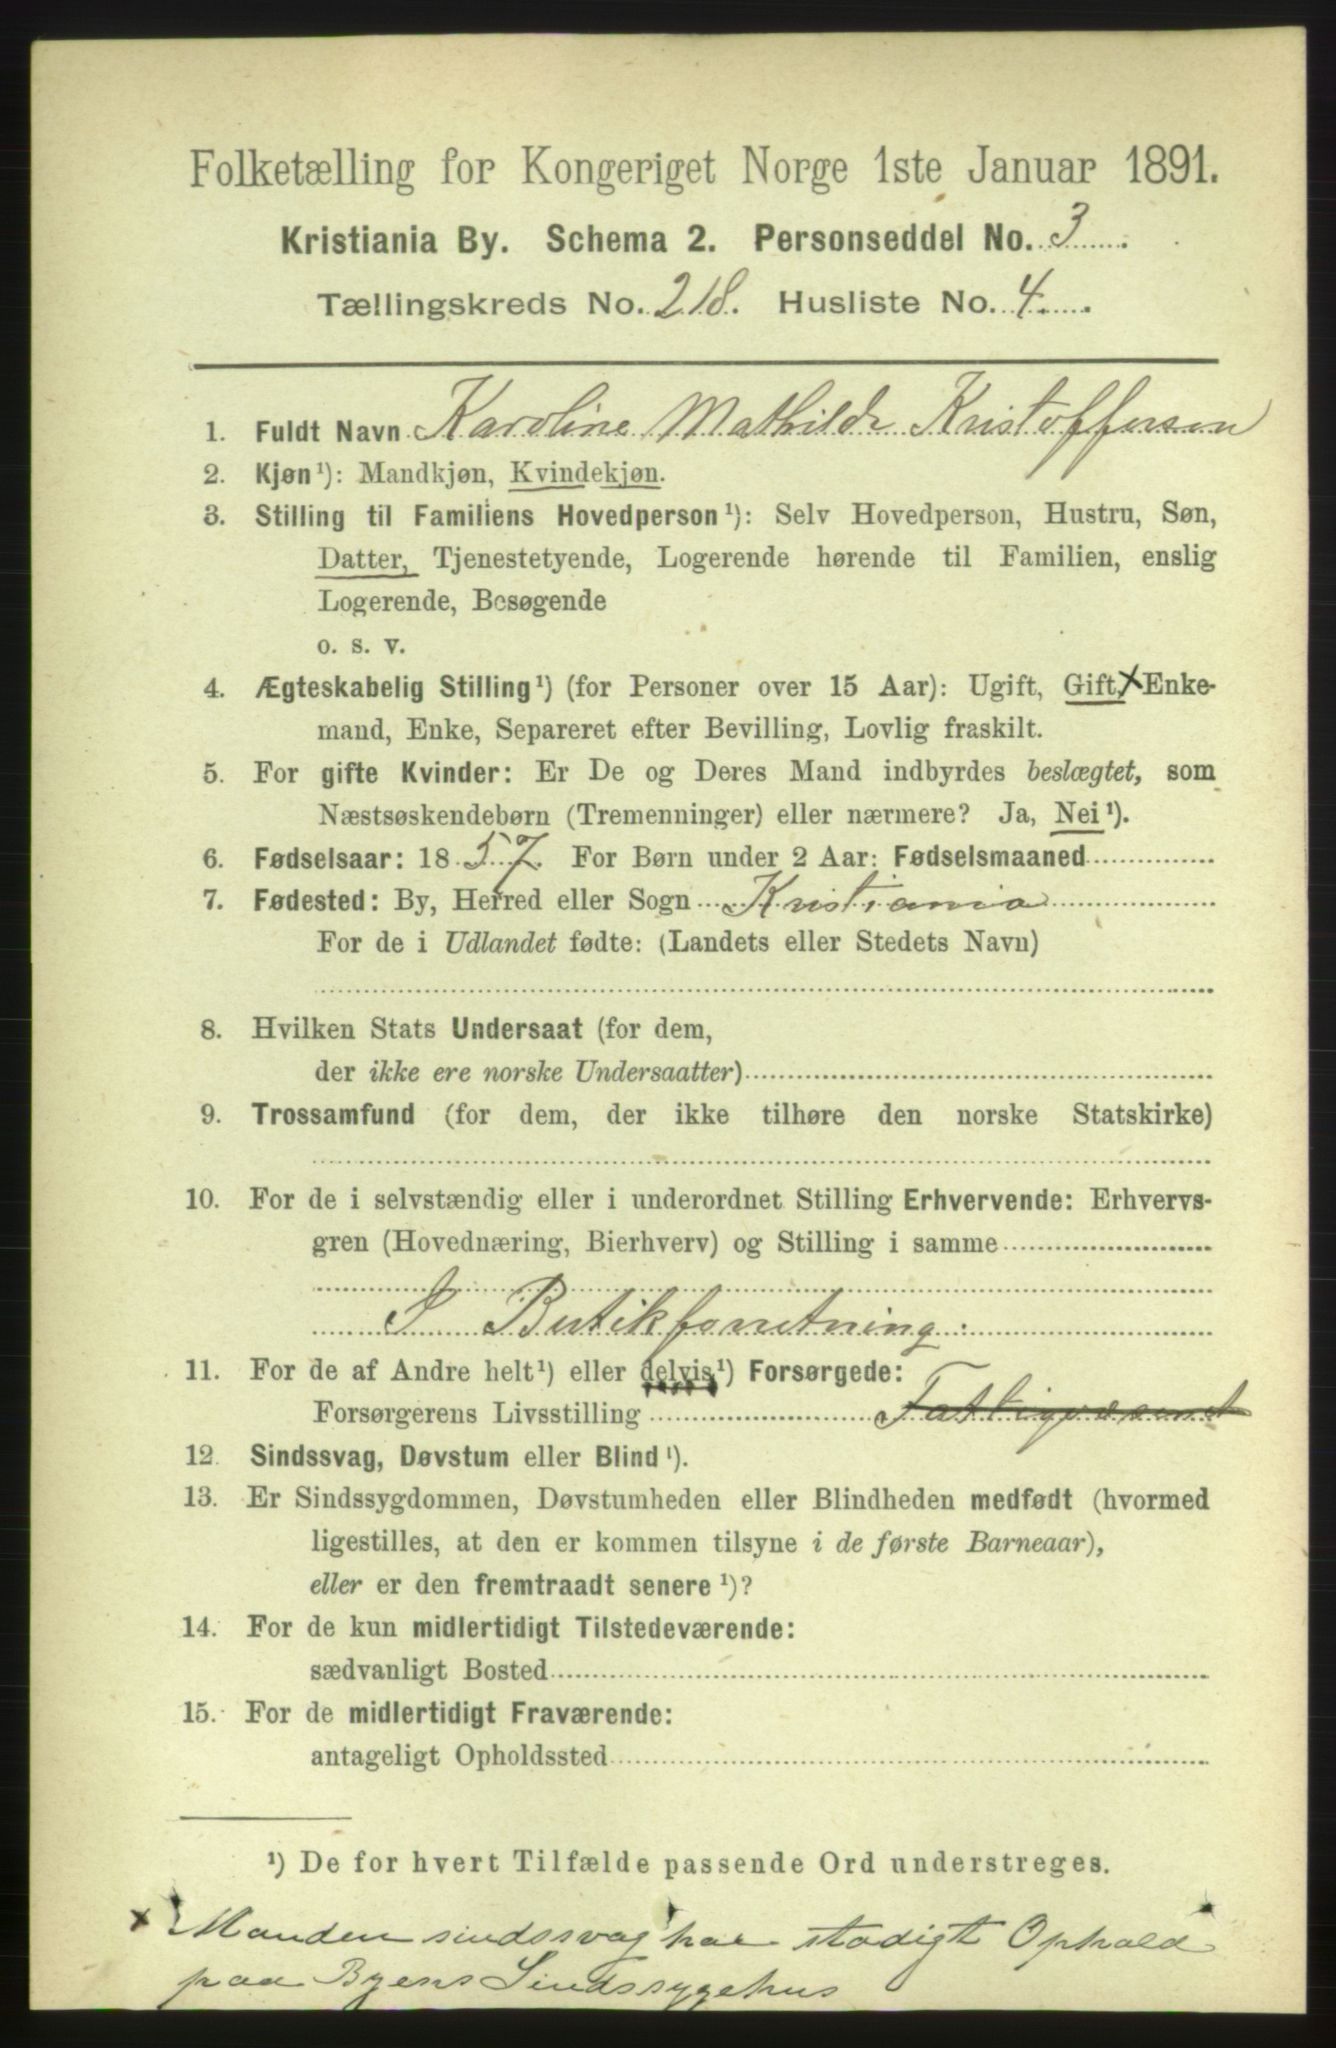 Folketælling for Kongeriget Norge 1ste Januar 1891.
Kristiania By. Schema 2. Personseddel No. 3
Tællingskreds No. 218. Husliste No. 4
1. Fuldt Navn Karoline Mathilde Kristoffersen
2. Kjøn¹): Mandkjøn, Kvindekjøn.
3. Stilling til Familiens Hovedperson¹): Selv Hovedperson, Hustru, Søn,
Datter, Tjenestetyende, Logerende hørende til Familien, enslig
Logerende, Besøgende
o. s. v.
4. Ægteskabelig Stilling¹) (for Personer over 15 Aar): Ugift, Gift, x Enke-
mand, Enke, Separeret efter Bevilling, Lovlig fraskilt.
5. For gifte Kvinder: Er De og Deres Mand indbyrdes beslægtet, som
Næstsøskendebørn (Tremenninger) eller nærmere? Ja, Nei¹).
6. Fødselsaar: 1857 For Børn under 2 Aar: Fødselsmaaned
7. Fødested: By, Herred eller Sogn Kristiania
For de i Udlandet fødte: (Landets eller Stedets Navn)
8. Hvilken Stats Undersaat (for dem,
der ikke ere norske Undersaatter)
9. Trossamfund (for dem, der ikke tilhøre den norske Statskirke)
10. For de i selvstændig eller i underordnet Stilling Erhvervende: Erhvervs-
gren (Hovednæring, Bierhverv) og Stilling i samme
I Butikforretning.
11. For de af Andre helt¹) eller delvis¹) Forsørgede:
Forsørgerens Livsstilling Fattigvæsenet
12. Sindssvag, Døvstum eller Blind¹).
13. Er Sindssygdommen, Døvstumheden eller Blindheden medfødt (hvormed
ligestilles, at den er kommen tilsyne i de første Barneaar),
eller er den fremtraadt senere¹)?
14. For de kun midlertidigt Tilstedeværende:
sædvanligt Bosted
15. For de midlertidigt Fraværende:
antageligt Opholdssted
¹) De for hvert Tilfælde passende Ord understreges.
x Manden sindssvag har stadigt Ophold
paa Byens Sindssygehus